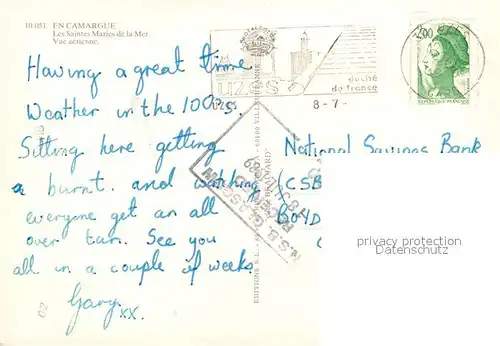 10.051. EN CAMARGUE
Les Saintes Maries de la Mer
Vue aérienne.
Having a great time
Weather in the 100°s.
Sitting here getting
a burnt. and watching
everyone get an all
over tan. See you
all in a couple of weeks.
Gary xx.
UZES
duché
de france
8-7-
2,00
REPUBLIQUE FRANÇAISE
N.S.B. GLASGOW
National Savings Bank
(CSB
BOYD
privacy protection
Datenschutz